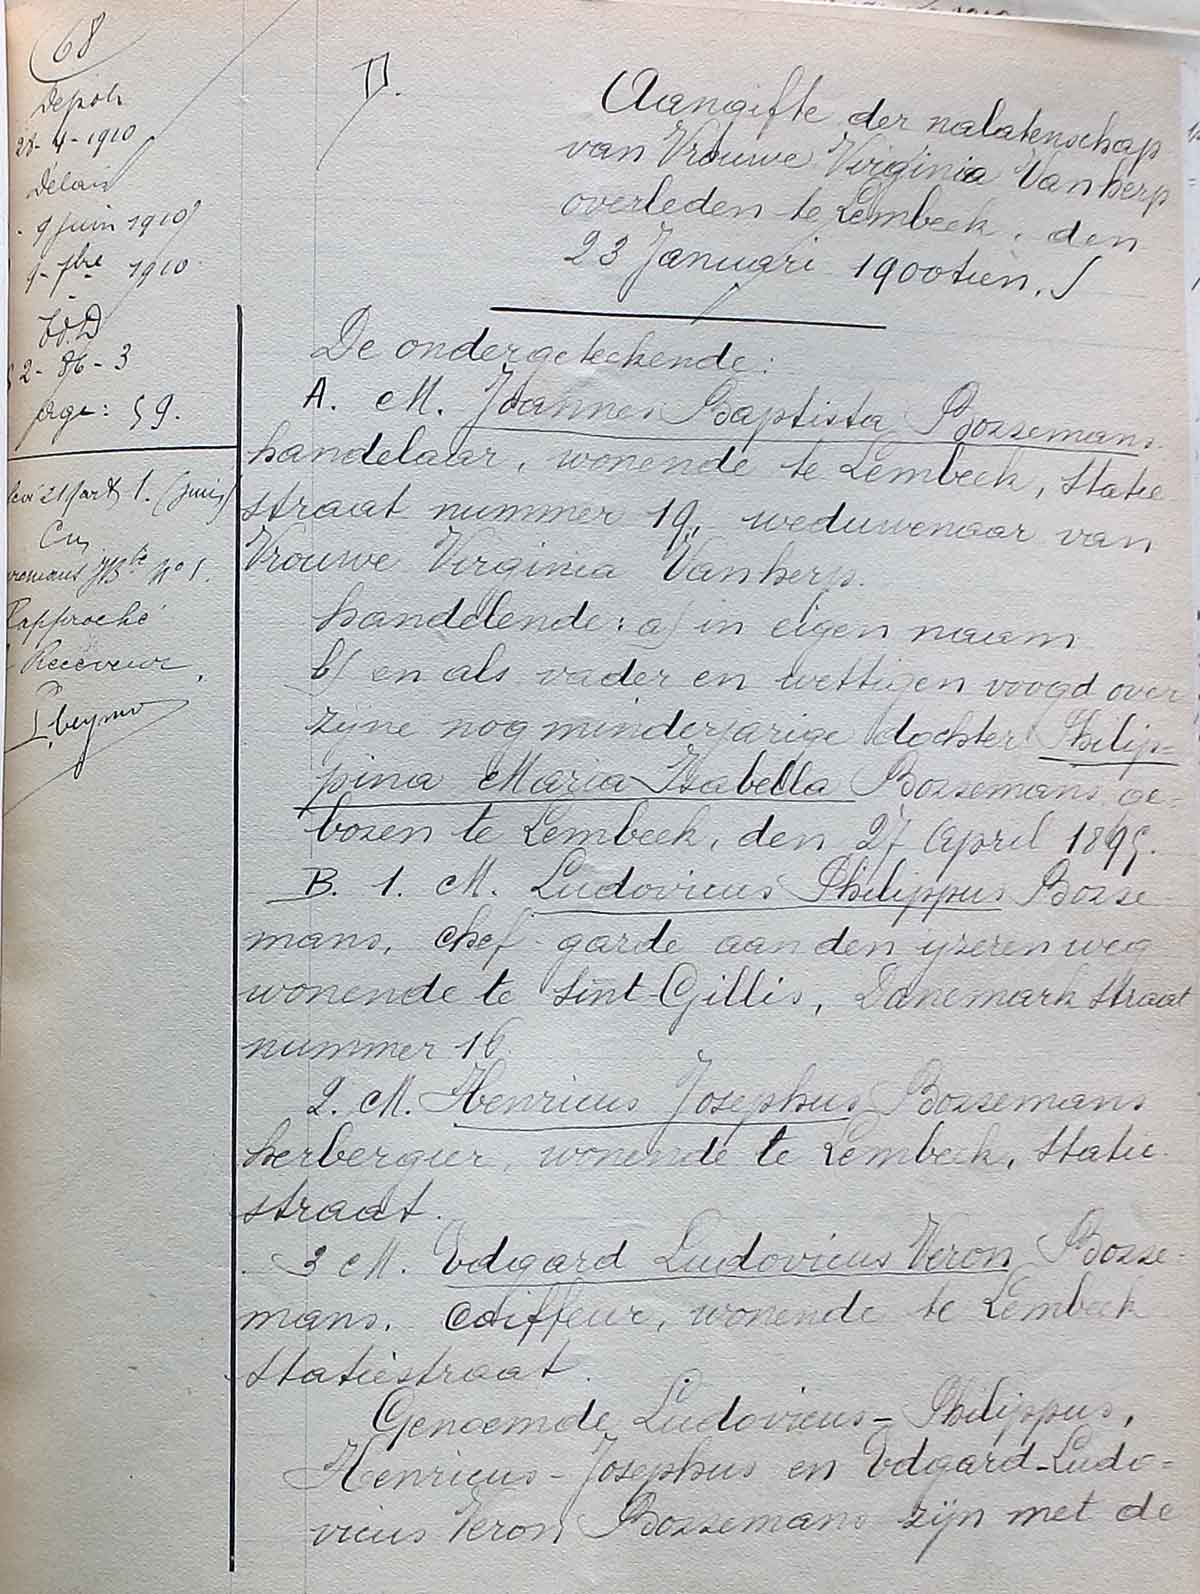 68
Dépôt
28-4-1910
Délai
9 juin 1910
9- 7bre 1910
page: 59.
art 1. (Juin)
Jh Bte No 1.
Rapproché
Receveur
D.
Aangifte der nalatenschap
van Vrouwe Virginia Vanherp
overleden te Lembeek, den
23 Januari 1900tien.
De ondergeteekende:
A. M. Joannes Baptista Bossemans
handelaar, wonende te Lembeek, Statie
straat nummer 19, weduwenaar van
Vrouwe Virginia Vanherp.
handelende: a) in eigen naam
b) en als vader en wettigen voogd over
zijne nog minderjarige dochter Philip=
pina Maria Isabella Bossemans ge=
boren te Lembeek, den 27 April 1895.
B. 1. M. Ludovicus Philippus Bosse
mans, chef-garde aan den ijzeren weg
wonende te Sint-Gillis, Danemark straat
nummer 16.
2. M. Henricus Josephus Bossemans
herbergier, wonende te Lembeek, Statie
straat.
3 M. Edgard Ludovicus Veron Bosse-
mans. Coiffeur, wonende te Lembeek
Statiestraat.
Genoemde Ludovicus-Philippus,
Henricus-Josephus en Edgard-Ludo-
vicus Veron Bossemans zijn met de